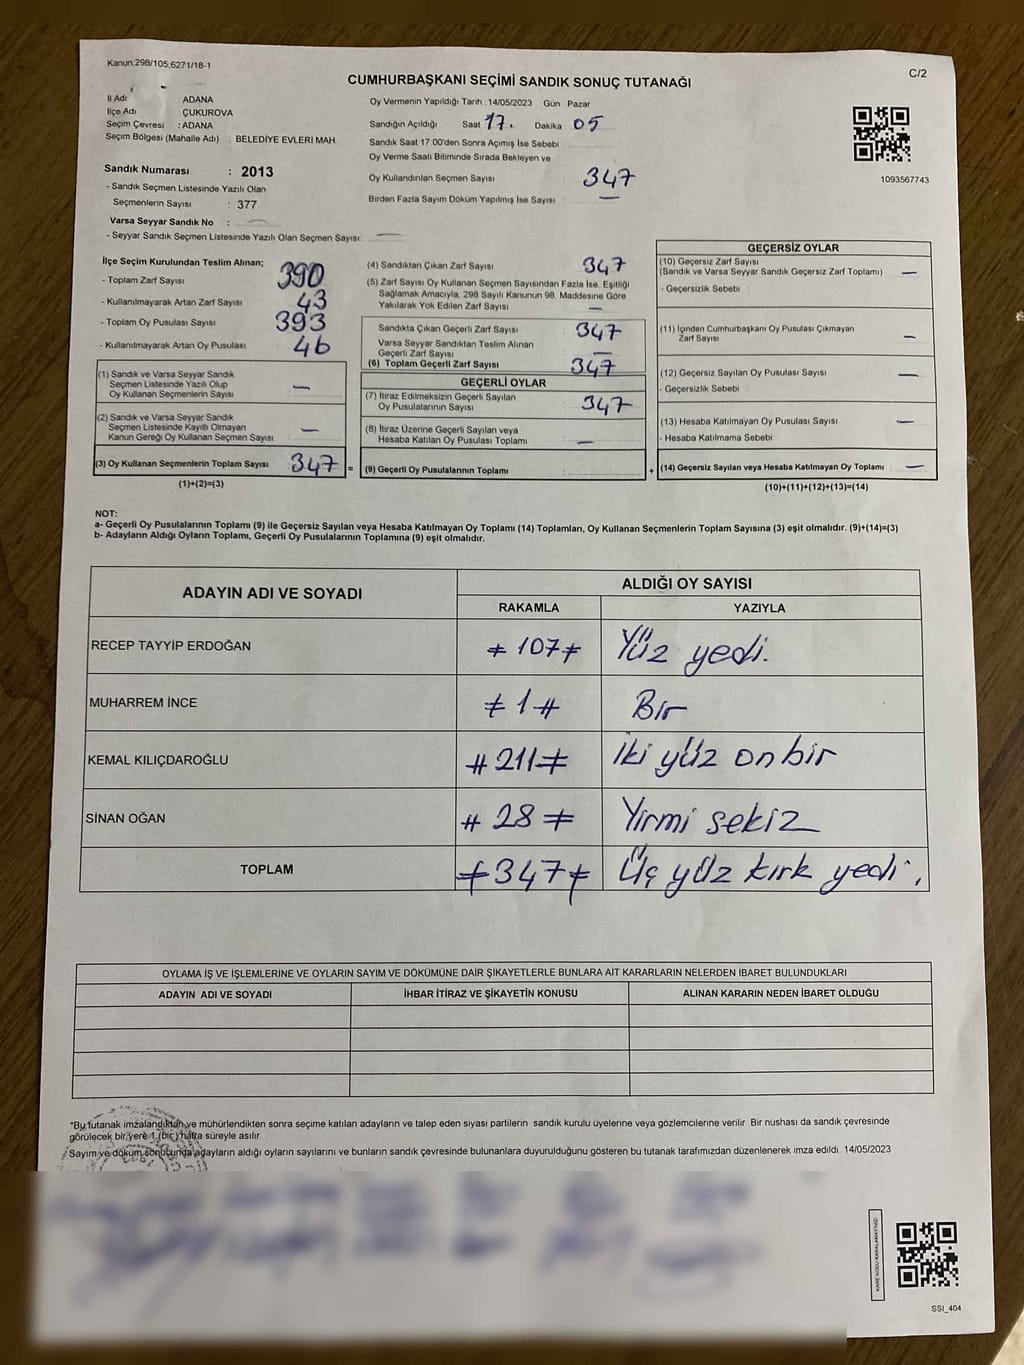 Kanun,298/105,6271/18-1
C/2
CUMHURBAŞKANI SEÇİMİ SANDIK SONUÇ TUTANAĞI
İl Adı : ADANA
İlçe Adı : ÇUKUROVA
Seçim Çevresi : ADANA
Seçim Bölgesi (Mahalle Adı) : BELEDİYE EVLERİ MAH.
Sandık Numarası : 2013
- Sandık Seçmen Listesinde Yazılı Olan
Seçmenlerin Sayısı : 377
Varsa Seyyar Sandık No :
- Seyyar Sandık Seçmen Listesinde Yazılı Olan Seçmen Sayısı:
Oy Vermenin Yapıldığı Tarih : 14/05/2023 Gün : Pazar
Sandığın Açıldığı Saat 17. Dakika 05
Sandık Saat 17:00'den Sonra Açımış İse Sebebi
Oy Verme Saati Bitiminde Sırada Bekleyen ve
Oy Kullandırılan Seçmen Sayısı : 347
Birden Fazla Sayım Döküm Yapılmış İse Sayısı : —
1093567743
İlçe Seçim Kurulundan Teslim Alınan;
- Toplam Zarf Sayısı : 390
- Kullanılmayarak Artan Zarf Sayısı : 43
- Toplam Oy Pusulası Sayısı : 393
- Kullanılmayarak Artan Oy Pusulası : 46
(1) Sandık ve Varsa Seyyar Sandık
Seçmen Listesinde Yazılı Olup
Oy Kullanan Seçmenlerin Sayısı —
(2) Sandık ve Varsa Seyyar Sandık
Seçmen Listesinde Kayıtlı Olmayan
Kanun Gereği Oy Kullanan Seçmen Sayısı —
(3) Oy Kullanan Seçmenlerin Toplam Sayısı 347 =
(1)+(2)=(3)
(4) Sandıktan Çıkan Zarf Sayısı : 347
(5) Zarf Sayısı Oy Kullanan Seçmen Sayısından Fazla İse, Eşitliği
Sağlamak Amacıyla, 298 Sayılı Kanunun 98. Maddesine Göre
Yakılarak Yok Edilen Zarf Sayısı : —
Sandıkta Çıkan Geçerli Zarf Sayısı : 347
Varsa Seyyar Sandıktan Teslim Alınan
Geçerli Zarf Sayısı : —
(6) Toplam Geçerli Zarf Sayısı : 347
GEÇERLİ OYLAR
(7) İtiraz Edilmeksizin Geçerli Sayılan
Oy Pusulalarının Sayısı : 347
(8) İtiraz Üzerine Geçerli Sayılan veya
Hesaba Katılan Oy Pusulası Toplamı : —
(9) Geçerli Oy Pusulalarının Toplamı +
GEÇERSİZ OYLAR
(10) Geçersiz Zarf Sayısı
(Sandık ve Varsa Seyyar Sandık Geçersiz Zarf Toplamı) : —
- Geçersizlik Sebebi :
(11) İçinden Cumhurbaşkanı Oy Pusulası Çıkmayan
Zarf Sayısı : —
(12) Geçersiz Sayılan Oy Pusulası Sayısı : —
- Geçersizlik Sebebi :
(13) Hesaba Katılmayan Oy Pusulası Sayısı : —
- Hesaba Katılmama Sebebi :
(14) Geçersiz Sayılan veya Hesaba Katılmayan Oy Toplamı : —
(10)+(11)+(12)+(13)=(14)
NOT:
a- Geçerli Oy Pusulalarının Toplamı (9) ile Geçersiz Sayılan veya Hesaba Katılmayan Oy Toplamı (14) Toplamları, Oy Kullanan Seçmenlerin Toplam Sayısına (3) eşit olmalıdır. (9)+(14)=(3)
b- Adayların Aldığı Oyların Toplamı, Geçerli Oy Pusulalarının Toplamına (9) eşit olmalıdır.
ADAYIN ADI VE SOYADI ALDIĞI OY SAYISI
RAKAMLA YAZIYLA
RECEP TAYYİP ERDOĞAN ≠ 107 ≠ Yüz yedi.
MUHARREM İNCE ≠ 1 # Bir
KEMAL KILIÇDAROĞLU # 211 ≠ İki yüz on bir
SİNAN OĞAN # 28 ≠ Yirmi sekiz
TOPLAM ≠ 347 ≠ Üç yüz kırk yedi.
OYLAMA İŞ VE İŞLEMLERİNE VE OYLARIN SAYIM VE DÖKÜMÜNE DAİR ŞİKAYETLERLE BUNLARA AİT KARARLARIN NELERDEN İBARET BULUNDUKLARI
ADAYIN ADI VE SOYADI İHBAR İTİRAZ VE ŞİKAYETİN KONUSU ALINAN KARARIN NEDEN İBARET OLDUĞU
*Bu tutanak imzalandıktan ve mühürlendikten sonra seçime katılan adayların ve talep eden siyasi partilerin sandık kurulu üyelerine veya gözlemcilerine verilir Bir nushası da sandık çevresinde
görülecek bir yere 1 (bir) hafta süreyle asılır.
Sayım ve döküm sonucunda adayların aldığı oyların sayılarını ve bunların sandık çevresinde bulunanlara duyurulduğunu gösteren bu tutanak tarafımızdan düzenlenerek imza edildi. 14/05/2023
KARE KODU KARALAMAYINIZ!
SSI_404